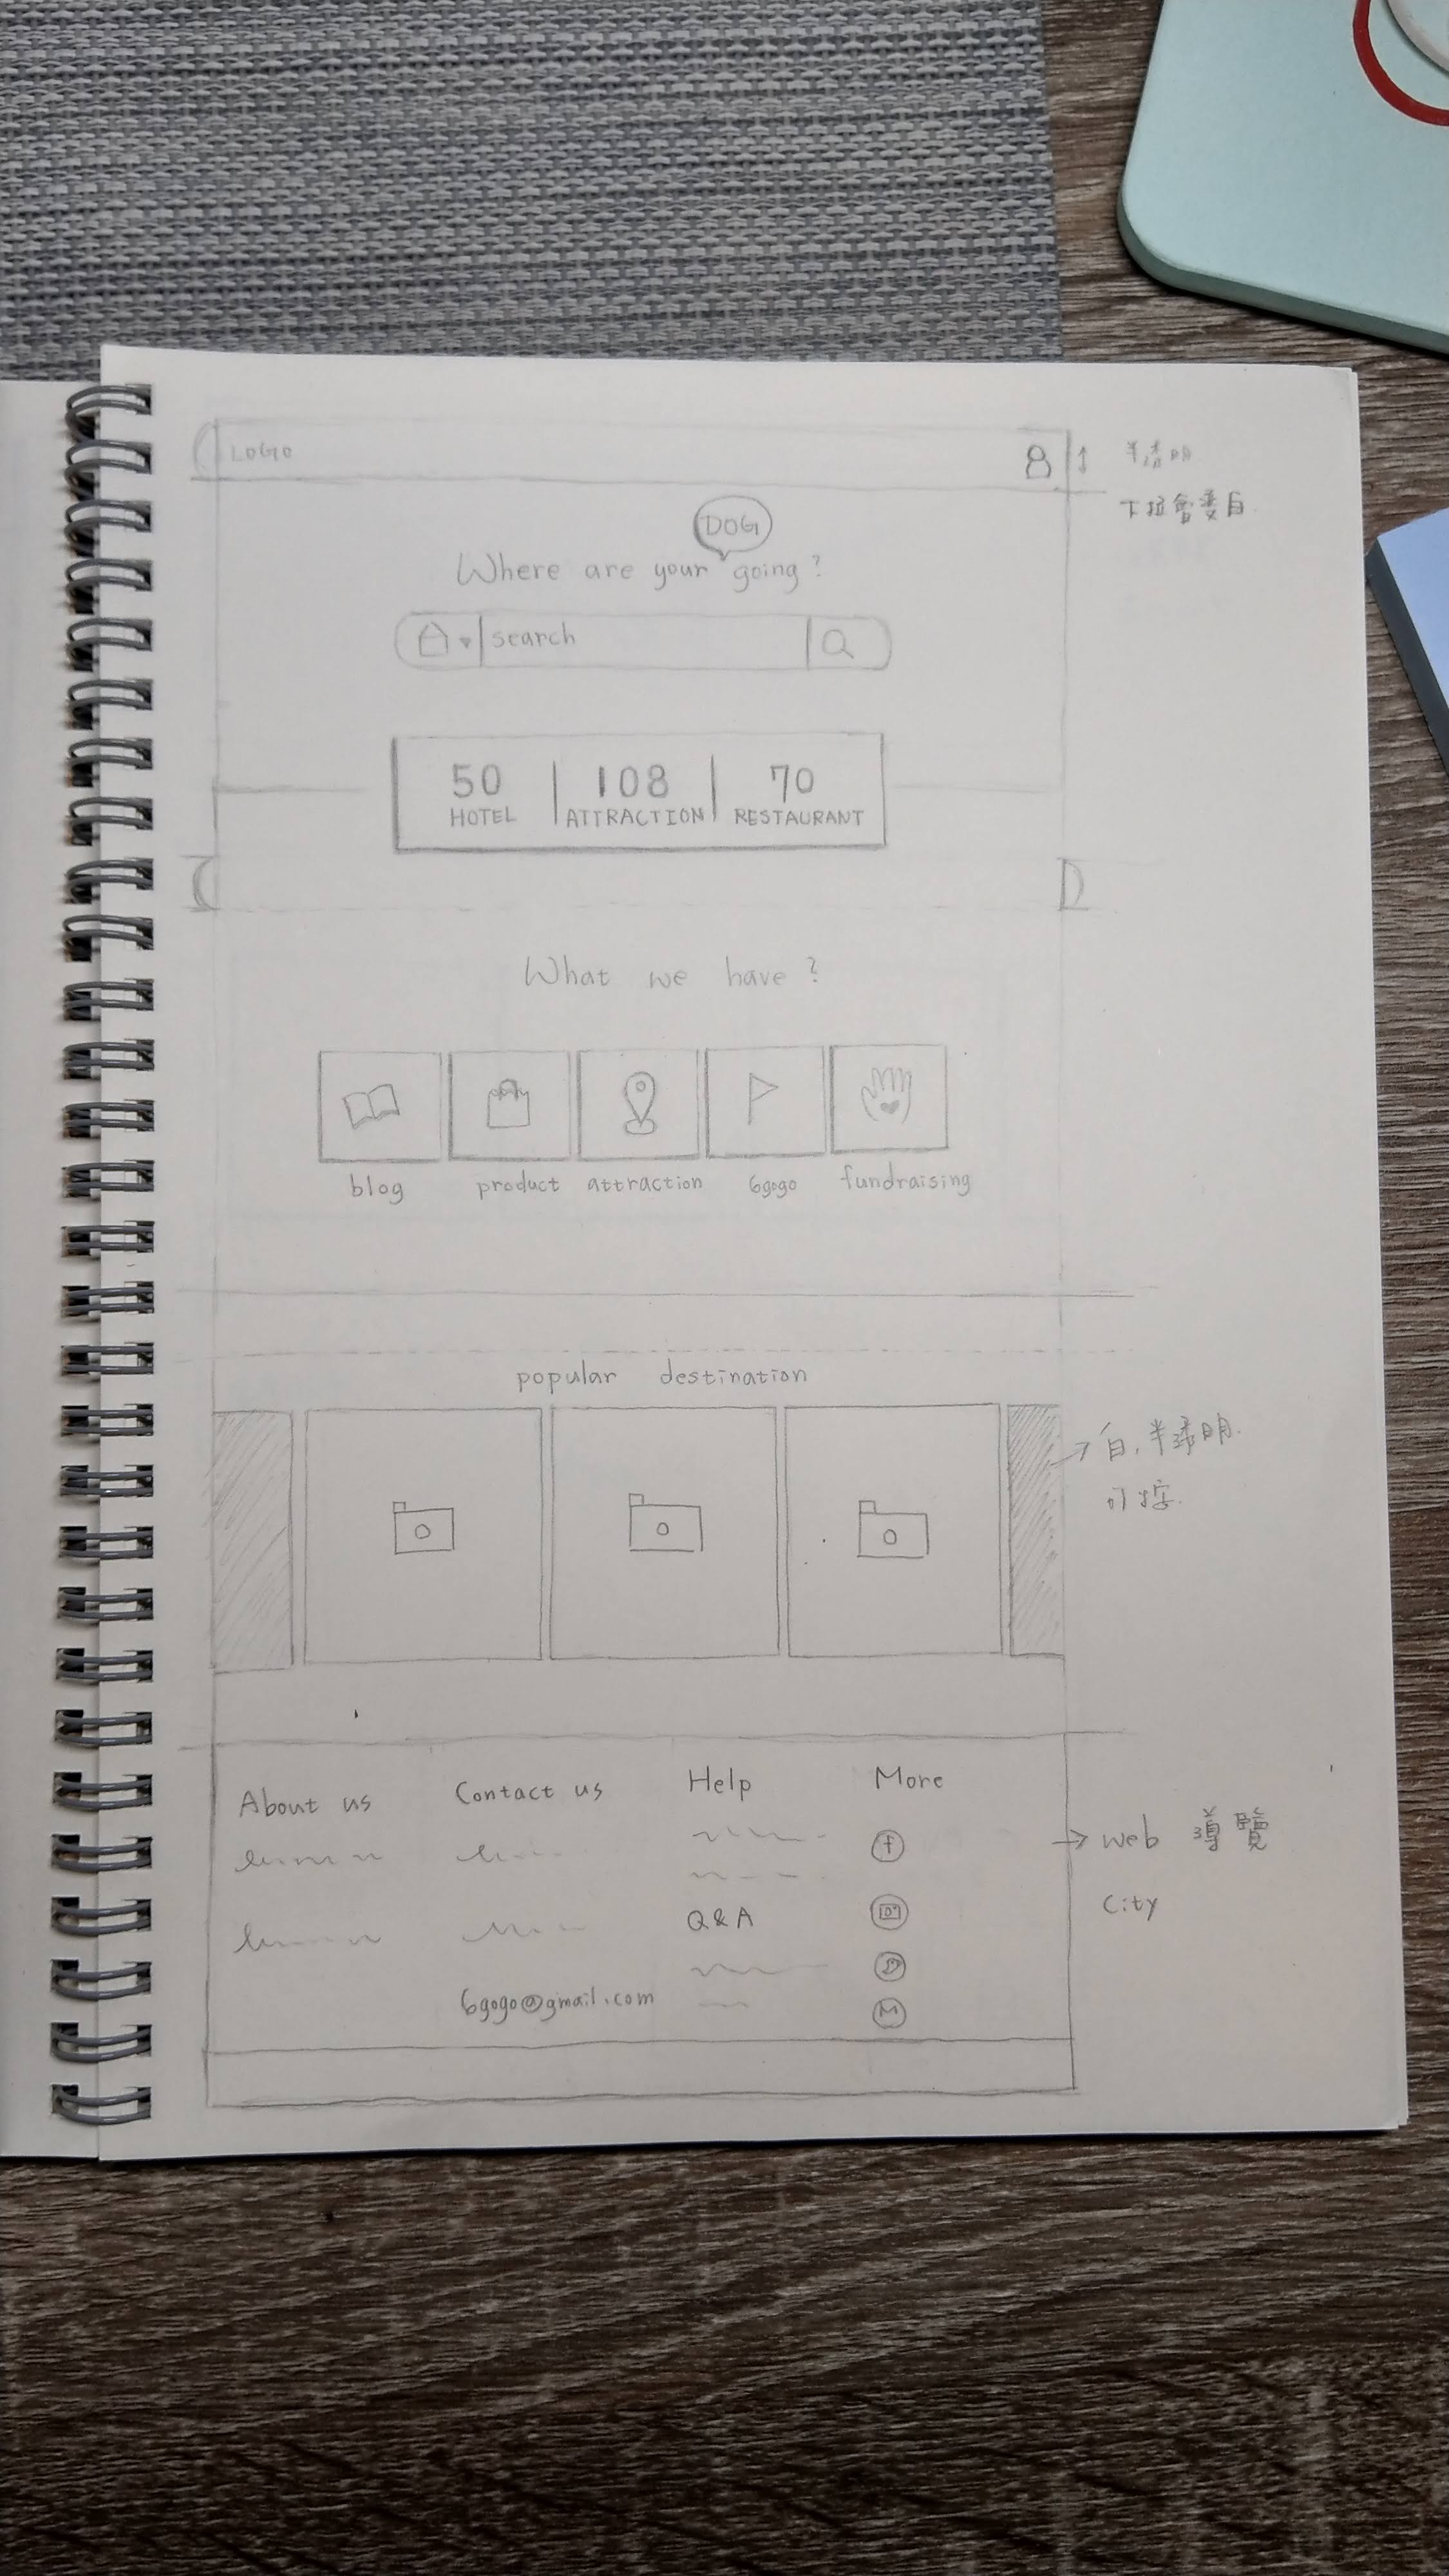 LOGO
半透明
下拉會變白
DOG
Where are your going?
search
50 108 70
HOTEL ATTRACTION RESTAURANT
What we have?
blog product attraction 6gogo fundraising
popular destination
白.半透明.
可按.
About us Contact us Help More
f
Q&A
M
6gogo@gmail.com
→ web 導覽
City